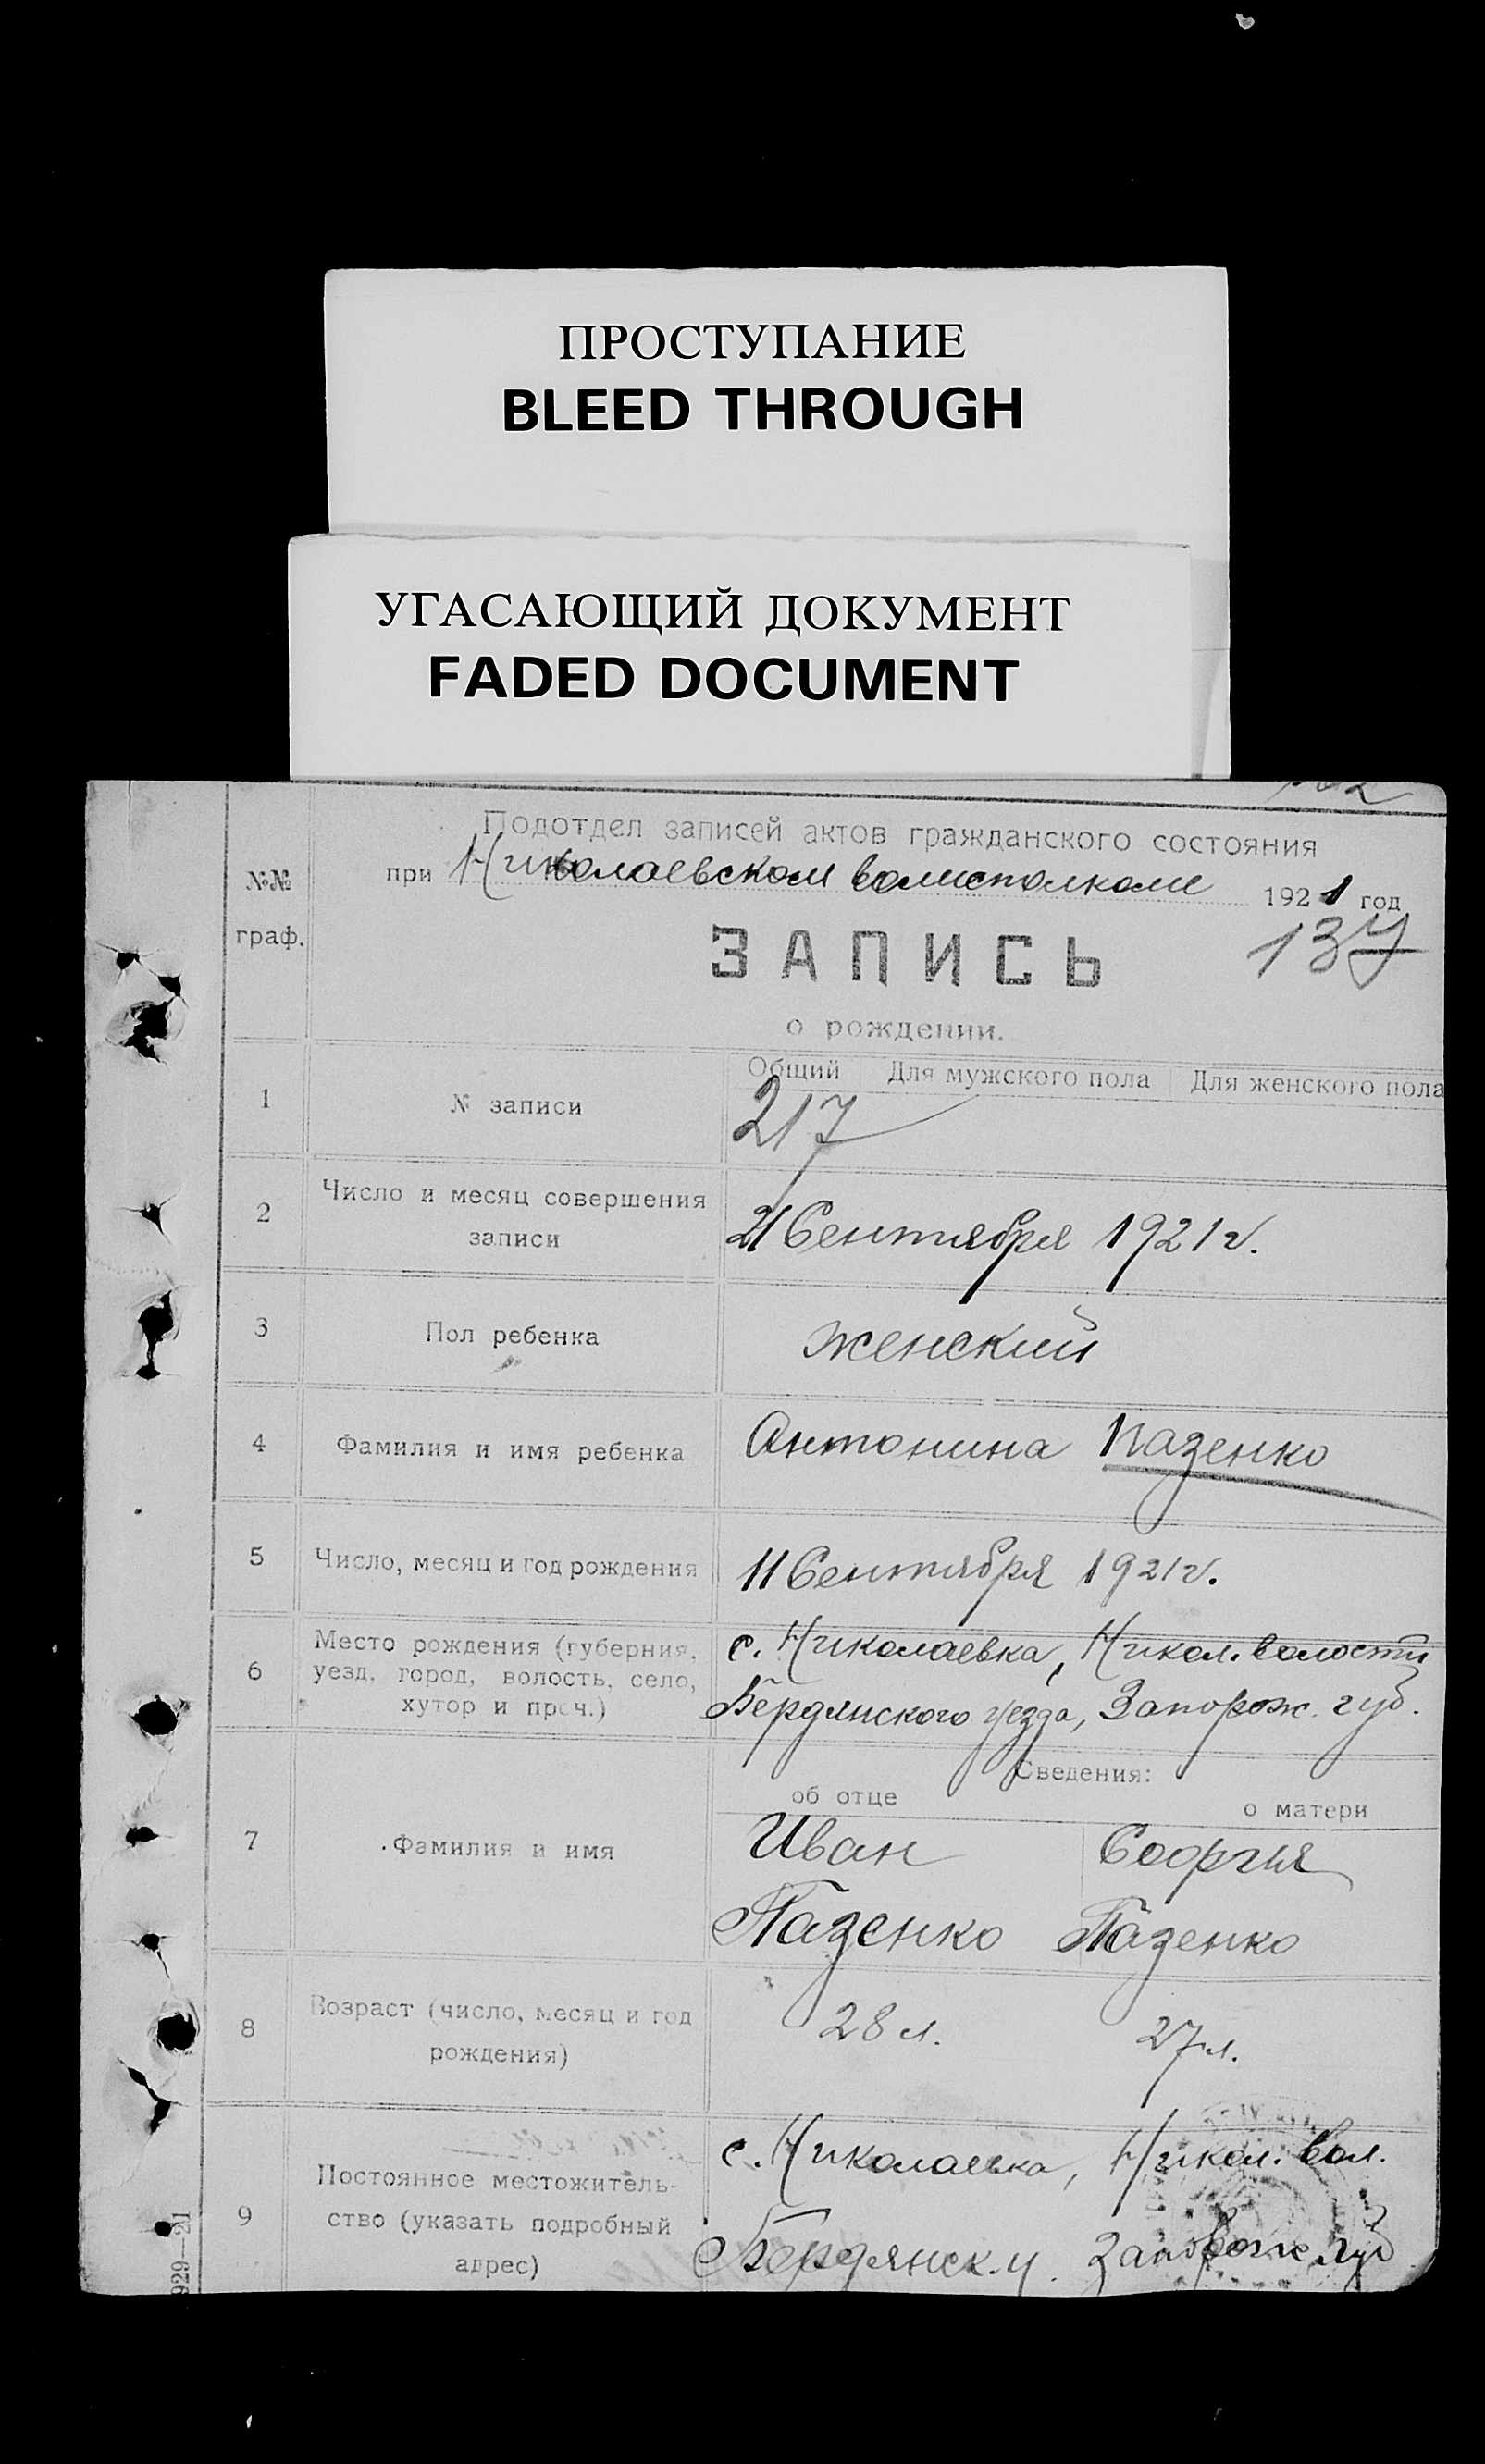 ПРОСТУПАНИЕ
BLEED THROUGH
УГАСАЮЩИЙ ДОКУМЕНТ
FADED DOCUMENT
Подотдел записей актов гражданского состояния
№№ граф.
при Николаевском волисполкоме 1921 год
ЗАПИСЬ 137
о рождении.
Общий Для мужского пола Для женского пола
1 № записи 217
2 Число и месяц совершения
записи 21 Сентября 1921 г.
3 Пол ребенка женский
4 Фамилия и имя ребенка Антонина Пазенко
5 Число, месяц и год рождения 11 Сентября 1921 г.
6 Место рождения (губерния, с. Николаевка, Никол. волости
уезд, город, волость, село,
хутор и проч.) Бердянского уезда, Запорож. губ.
Сведения:
об отце о матери
7 Фамилия и имя Иван
Пазенко Пазенко
8 Возраст (число, месяц и год 28 л. 27 л.
рождения)
с. Николаевка, Никол. вол.
Постоянное местожитель-
9 ство (указать подробный
адрес) Бердянск. у. Запорож. губ
929—21